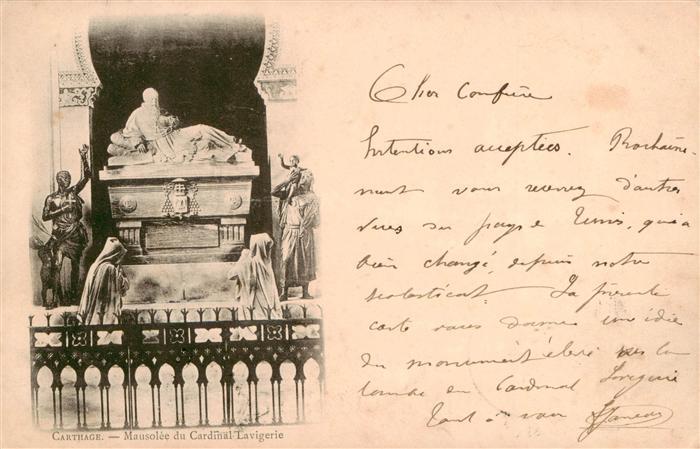 Cher Confrère
Intentions acceptées. Prochaine-
ment vous recevrez d'autres
vues du pays de Tunis, qui a
bien changé, depuis notre
scolasticat. La présente
carte vous donne une idée
du monument élevé sur la
tombe du Cardinal Lavigerie
Tout à vous
CARTHAGE. — Mausolée du Cardinal Lavigerie